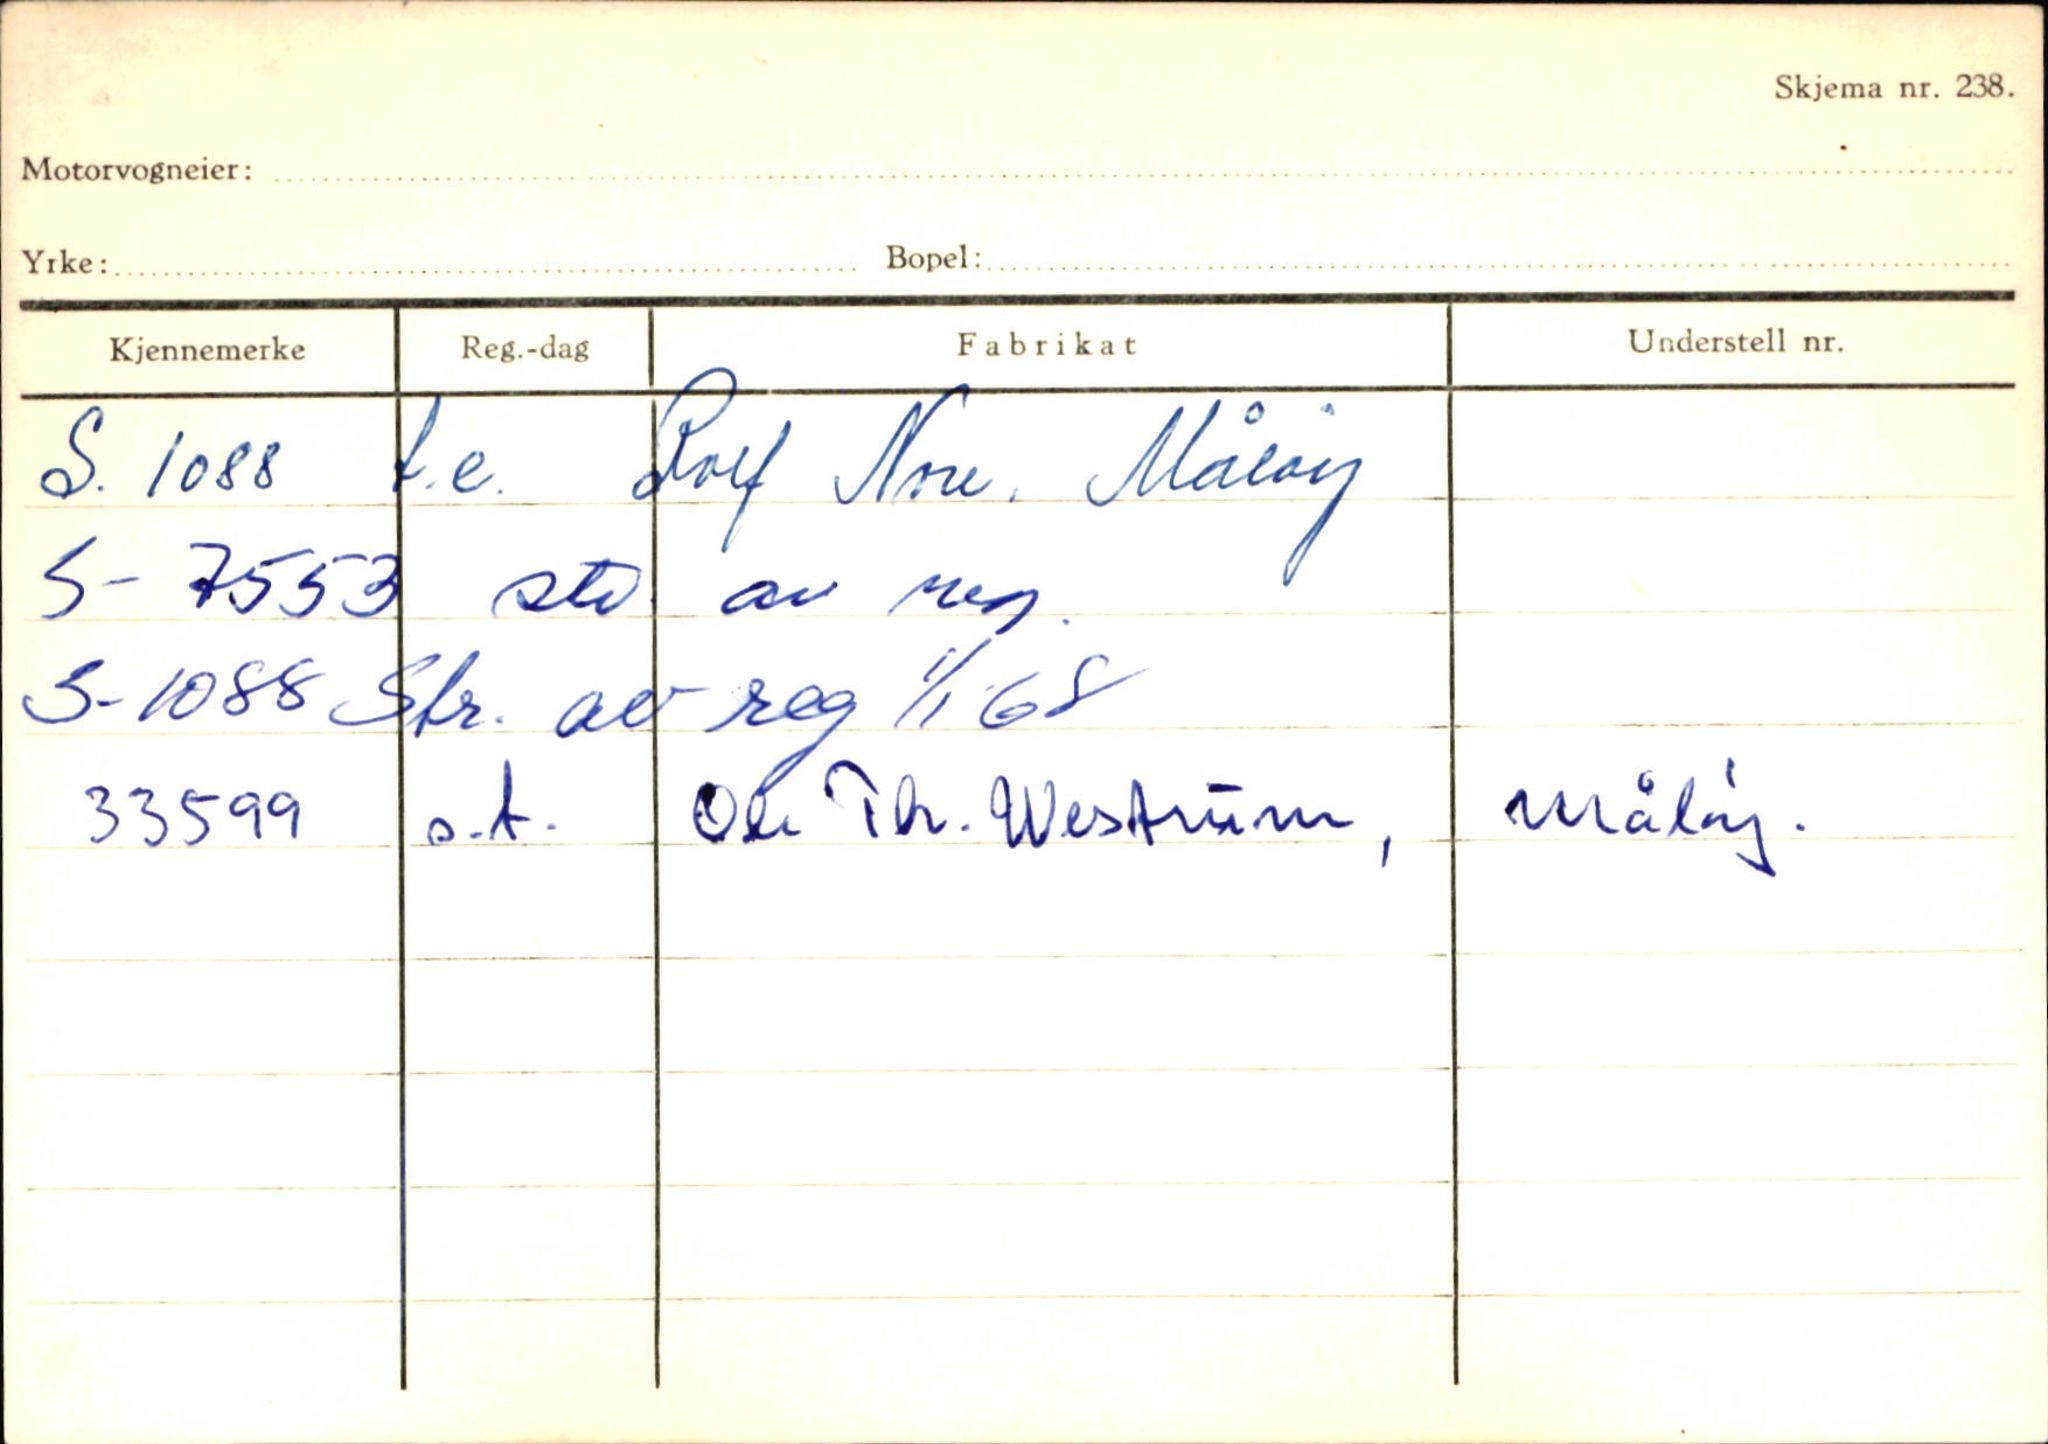 Skjema nr. 238.
Motorvogneier:
Yrke: Bopel:
Kjennemerke Reg.-dag Fabrikat Understell nr.
S. 1088 t.e. Rolf Nore. Måløy
S- 7553 av reg.
S-1088 Str. av reg 1/1-68
33599 s.t. Ole Th. Westrum, Måløy.